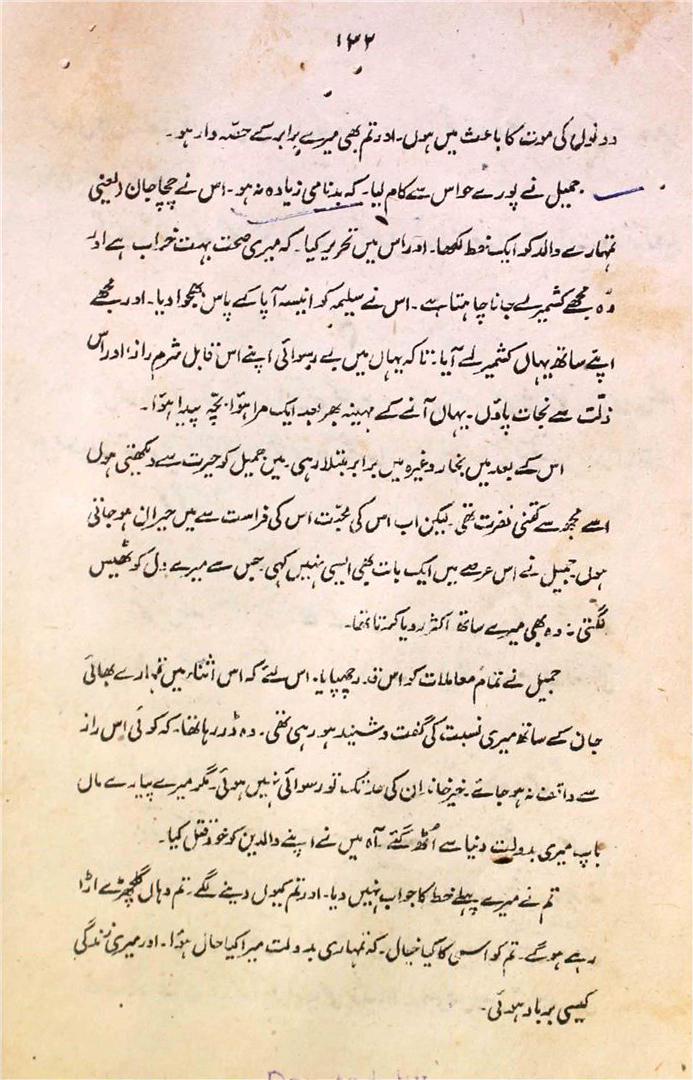 ۱۳۲
دونوں کی موت کا باعث میں ہوں۔ اور تم بھی میرے برابر کے حصّہ دار ہو۔
جمیل نے پورے حواس سے کام لیا۔ کہ بدنامی زیادہ نہ ہو۔ اس نے چچا جان (یعنی
تمہارے والد کو ایک خط لکھا۔ اور اس میں تحریر کیا۔ کہ میری صحت بہت خراب ہے اور
وہ مجھے کشمیر لے جانا چاہتا ہے۔ اس نے سلیمہ کو انیسہ آپا کے پاس بھجوا دیا۔ اور مجھے
اپنے ساتھ یہاں کشمیر لے آیا۔ تاکہ یہاں میں بے رسوائی اپنے اس قابل شرم راز، اور اس
ذلّت سے نجات پاؤں۔ یہاں آنے کے مہینہ بھر بعد ایک مرا ہؤا بچّہ پیدا ہؤا۔
اس کے بعد میں بخار وغیرہ میں برابر مبتلا رہی۔ میں جمیل کو حیرت سے دیکھتی ہوں
اسے مجھ سے کتنی نفرت تھی۔ لیکن اب اس کی محبّت اس کی فراست سے میں حیران ہو جاتی
ہوں۔ جمیل نے اس عرصے میں ایک بات بھی ایسی نہیں کہی جس سے میرے دل کو ٹھیس
لگتی۔ وہ بھی میرے ساتھ اکثر رویا کرتا تھا۔
جمیل نے تمام معاملات کو اس قدر چھپایا۔ اس لئے کہ اس اثناء میں تمہارے بھائی
جان کے ساتھ میری نسبت کی گفت و شنید ہو رہی تھی۔ وہ ڈر رہا تھا۔ کہ کوئی اس راز
سے واقف نہ ہو جائے۔ خیر خاندان کی حد تک تو رسوائی نہیں ہوئی۔ مگر میرے پیارے ماں
باپ میری بدولت دنیا سے اُٹھ گئے۔ آہ میں نے اپنے والدین کو خود قتل کیا۔
تم نے میرے پہلے خط کا جواب نہیں دیا۔ اور تم کیوں دینے لگے۔ تم وہاں گلچھڑے اڑا
رہے ہوگے۔ تم کو اس کا کیا خیال۔ کہ تمہاری بدولت میرا کیا حال ہؤا۔ اور میری زندگی
کیسی برباد ہوئی۔